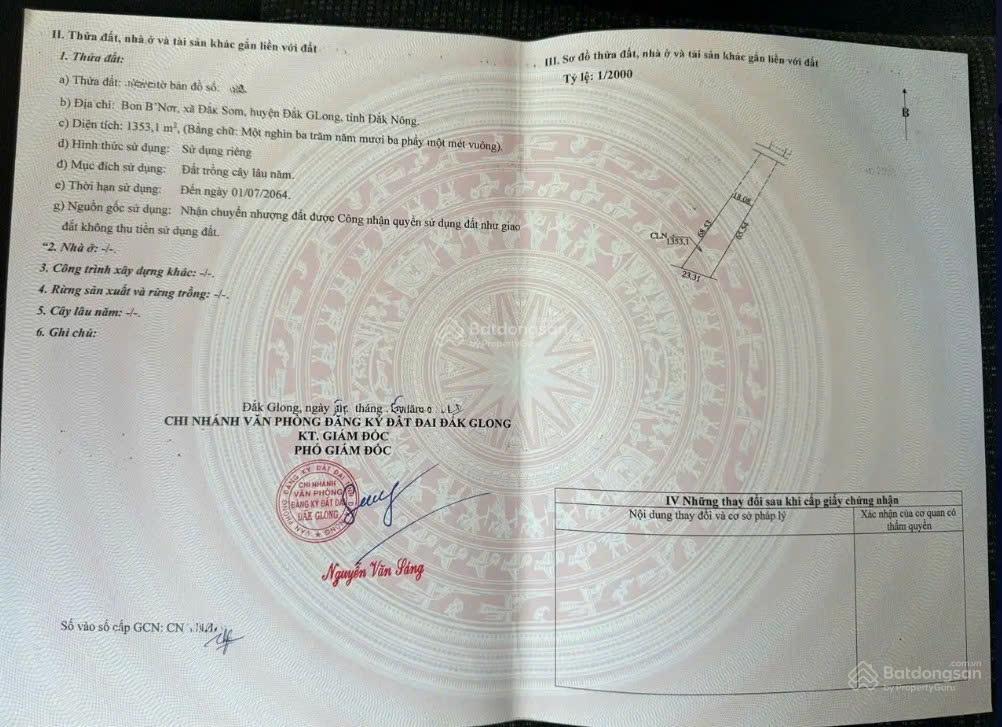 II. Thửa đất, nhà ở và tài sản khác gắn liền với đất
1. Thửa đất:
a) Thửa đất: tờ bản đồ số:
b) Địa chỉ: Bon B'Nơr, xã Đắk Som, huyện Đắk GLong, tỉnh Đắk Nông.
c) Diện tích: 1353,1 m², (Bằng chữ: Một nghìn ba trăm năm mươi ba phẩy một mét vuông).
d) Hình thức sử dụng: Sử dụng riêng
đ) Mục đích sử dụng: Đất trồng cây lâu năm.
e) Thời hạn sử dụng: Đến ngày 01/07/2064.
g) Nguồn gốc sử dụng: Nhận chuyển nhượng đất được Công nhận quyền sử dụng đất như giao
đất không thu tiền sử dụng đất.
"2. Nhà ở: -/-.
3. Công trình xây dựng khác: -/-.
4. Rừng sản xuất và rừng trồng: -/-.
5. Cây lâu năm: -/-.
6. Ghi chú:
Đắk Glong, ngày tháng
CHI NHÁNH VĂN PHÒNG ĐĂNG KÝ ĐẤT ĐAI ĐẮK GLONG
KT. GIÁM ĐỐC
PHÓ GIÁM ĐỐC
CHI NHÁNH
VĂN PHÒNG
ĐĂNG KÝ ĐẤT ĐAI
ĐẮK GLONG
Nguyễn Văn Sáng
Số vào sổ cấp GCN: CN
III. Sơ đồ thửa đất, nhà ở và tài sản khác gắn liền với đất
Tỷ lệ: 1/2000
B
18.08
68.53
65.54
CLN
1353,1
23.31
IV Những thay đổi sau khi cấp giấy chứng nhận
Nội dung thay đổi và cơ sở pháp lý
Xác nhận của cơ quan có
thẩm quyền
Batdongsan
by PropertyGuru
Batdongsan
.com.vn
by PropertyGuru